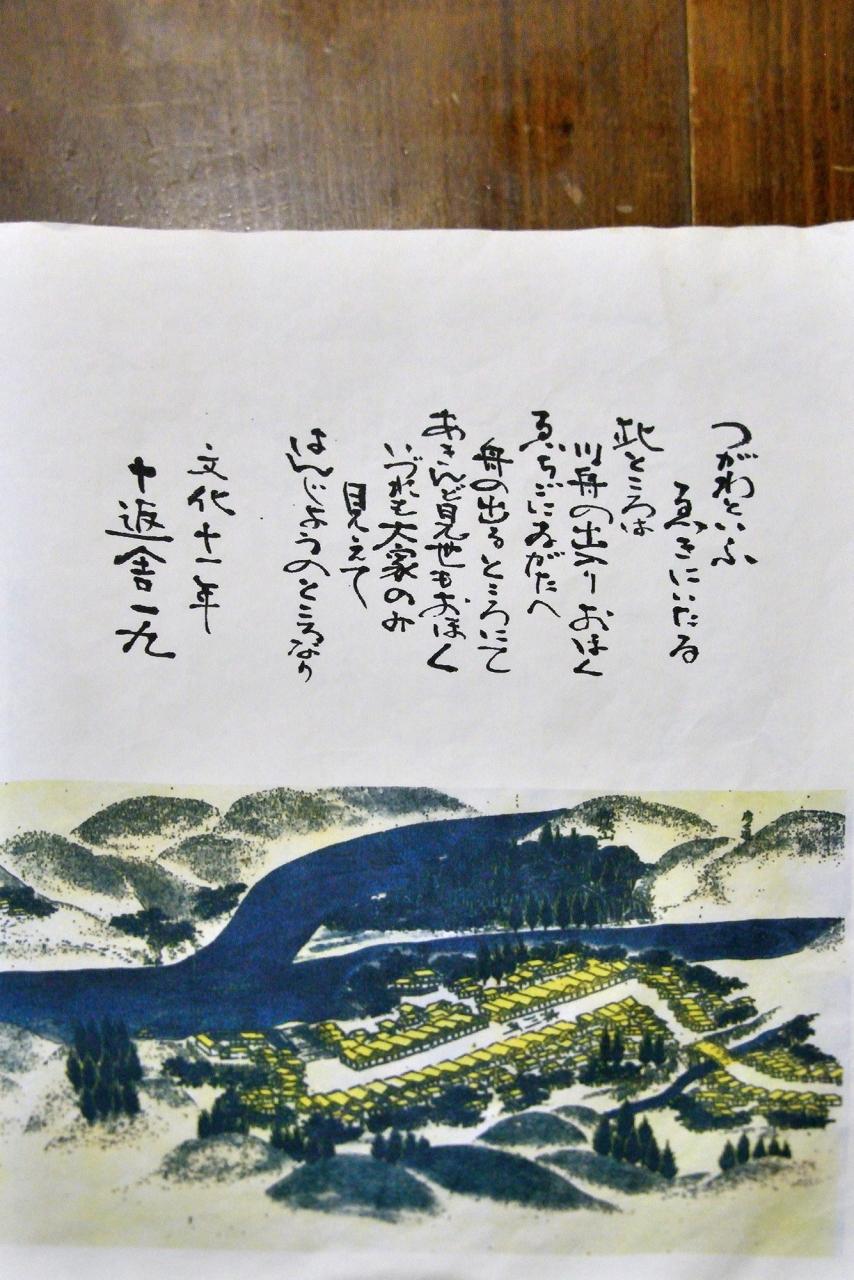 つがわといふ
ゑきにいたる
此ところは
川舟の出入りおほく
ゑちごにゐがたへ
舟の出るところにて
あきんど見世もおほく
いづれも大家のみ
見えて
はんじようのところなり
文化十一年
十返舎一九